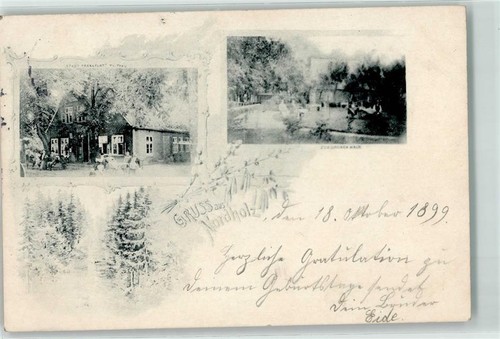 STADT FRANKFURT
GRUSS aus
Nordholz
, den 18. Oktober 1899.
Herzliche Gratulation zu
deinem Geburtstage sendet
dein Bruder
Eide.